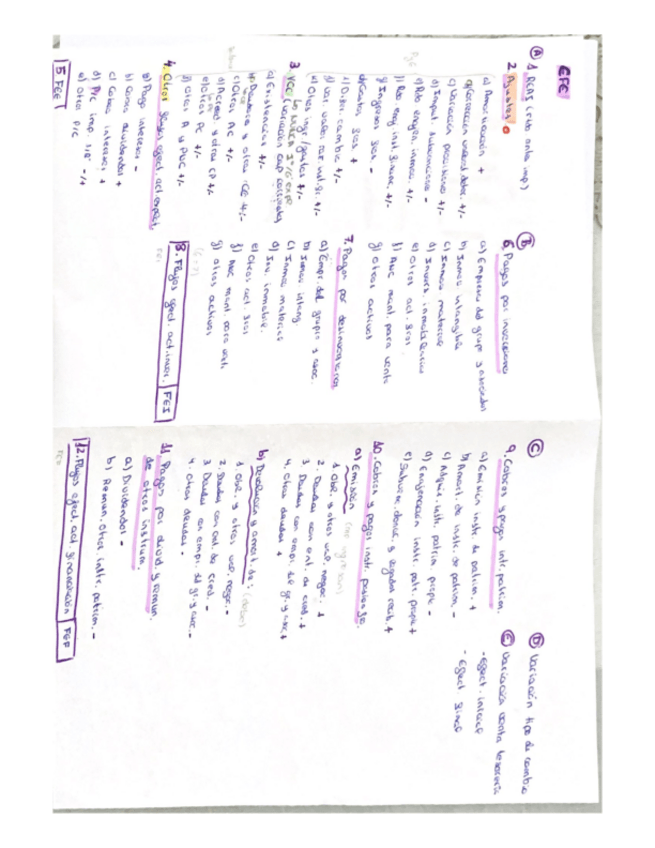 EFC
Ⓐ 1. RCAI (rtdo antes imp)
2. Ajustes
a) Amortización +
c) Variación provisiones +/-
d) Imput. subvenciones -
e) Rdo enajen. inmov. +/-
f) Rdo enaj. inst. financ. +/-
g) Ingresos fros. -
h) Gastos fros. +
i) Difer. cambio +/-
j) Var. valor raz. instr. fr. +/-
k) Otros ingr/gastos +/-
3. VCC (variación cap corriente)
a) Existencias +/-
b) Deudores y otras cc +/-
c) Otros AC +/-
d) Acreed y otras cp +/-
e) Otros PC +/-
f) Otros A y PNC +/-
4. Otros flujos efect act explot
a) Pago intereses -
b) Cobros dividendos +
c) Cobros intereses +
d) P/C imp. s/Bº -/+
e) Otros P/C
5 FEE
Ⓑ
6. Pagos por inversiones
a) Empresas del grupo y asociadas
b) Inmov. intangible
c) Inmov. material
d) Invers. inmobiliarias
e) Otros act. fros.
f) ANC mant. para venta
g) Otros activos
7. Pagos por desinversiones
a) Empr. del grupo y asoc.
b) Inmov. intang.
c) Inmov. material
d) Inv. inmobile.
e) Otros act fros
f) ANC mant. para vent.
g) Otros activos
8. Flujos efect. act. inver. FEI
Ⓒ
9. Cobros y pagos intr. patrim.
a) Emisión instr. de patrim. +
b) Amort. de instr. de patrim. -
c) Adquis. instr. patrim. propio -
d) Enajenación instr. patr. propio +
e) Subven., donac. y legados recib. +
10. Cobros y pagos instr. pasivo fro.
a) Emisión
1. Obl. y otros val. negoc. +
2. Deudas con ent. de cred. +
3. Deudas con empr. del gr. y asoc +
4. Otras deudas +
b) Devolución y amort. de: (debo)
1. Obl. y otros val. negoc. -
2. Deudas con ent. de cred. -
3. Deudas con empr. del gr. y asoc. -
4. Otras deudas -
11. Pagos por divid. y remun. de otros instrum.
a) Dividendos -
b) Remun. otros instr. patrim. -
12. Flujos efect. act. financiación FEF
Ⓓ Variación tipo de cambio
Ⓔ Variación cuenta tesorería
- Efect. inicial
- Efect. final